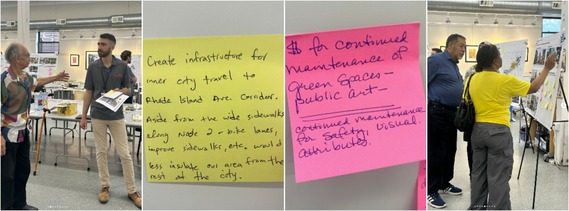 Create infrastructure for
inner city travel to
Rhode Island Ave. Corridor.
Aside from the wide sidewalks
along Node 2 - bike lanes,
improve sidewalks, etc. would
less isolate our area from the
rest of the city.
$ for continued
maintenance of
green spaces-
public art-
continued maintenance
for safety, visual
attributes.